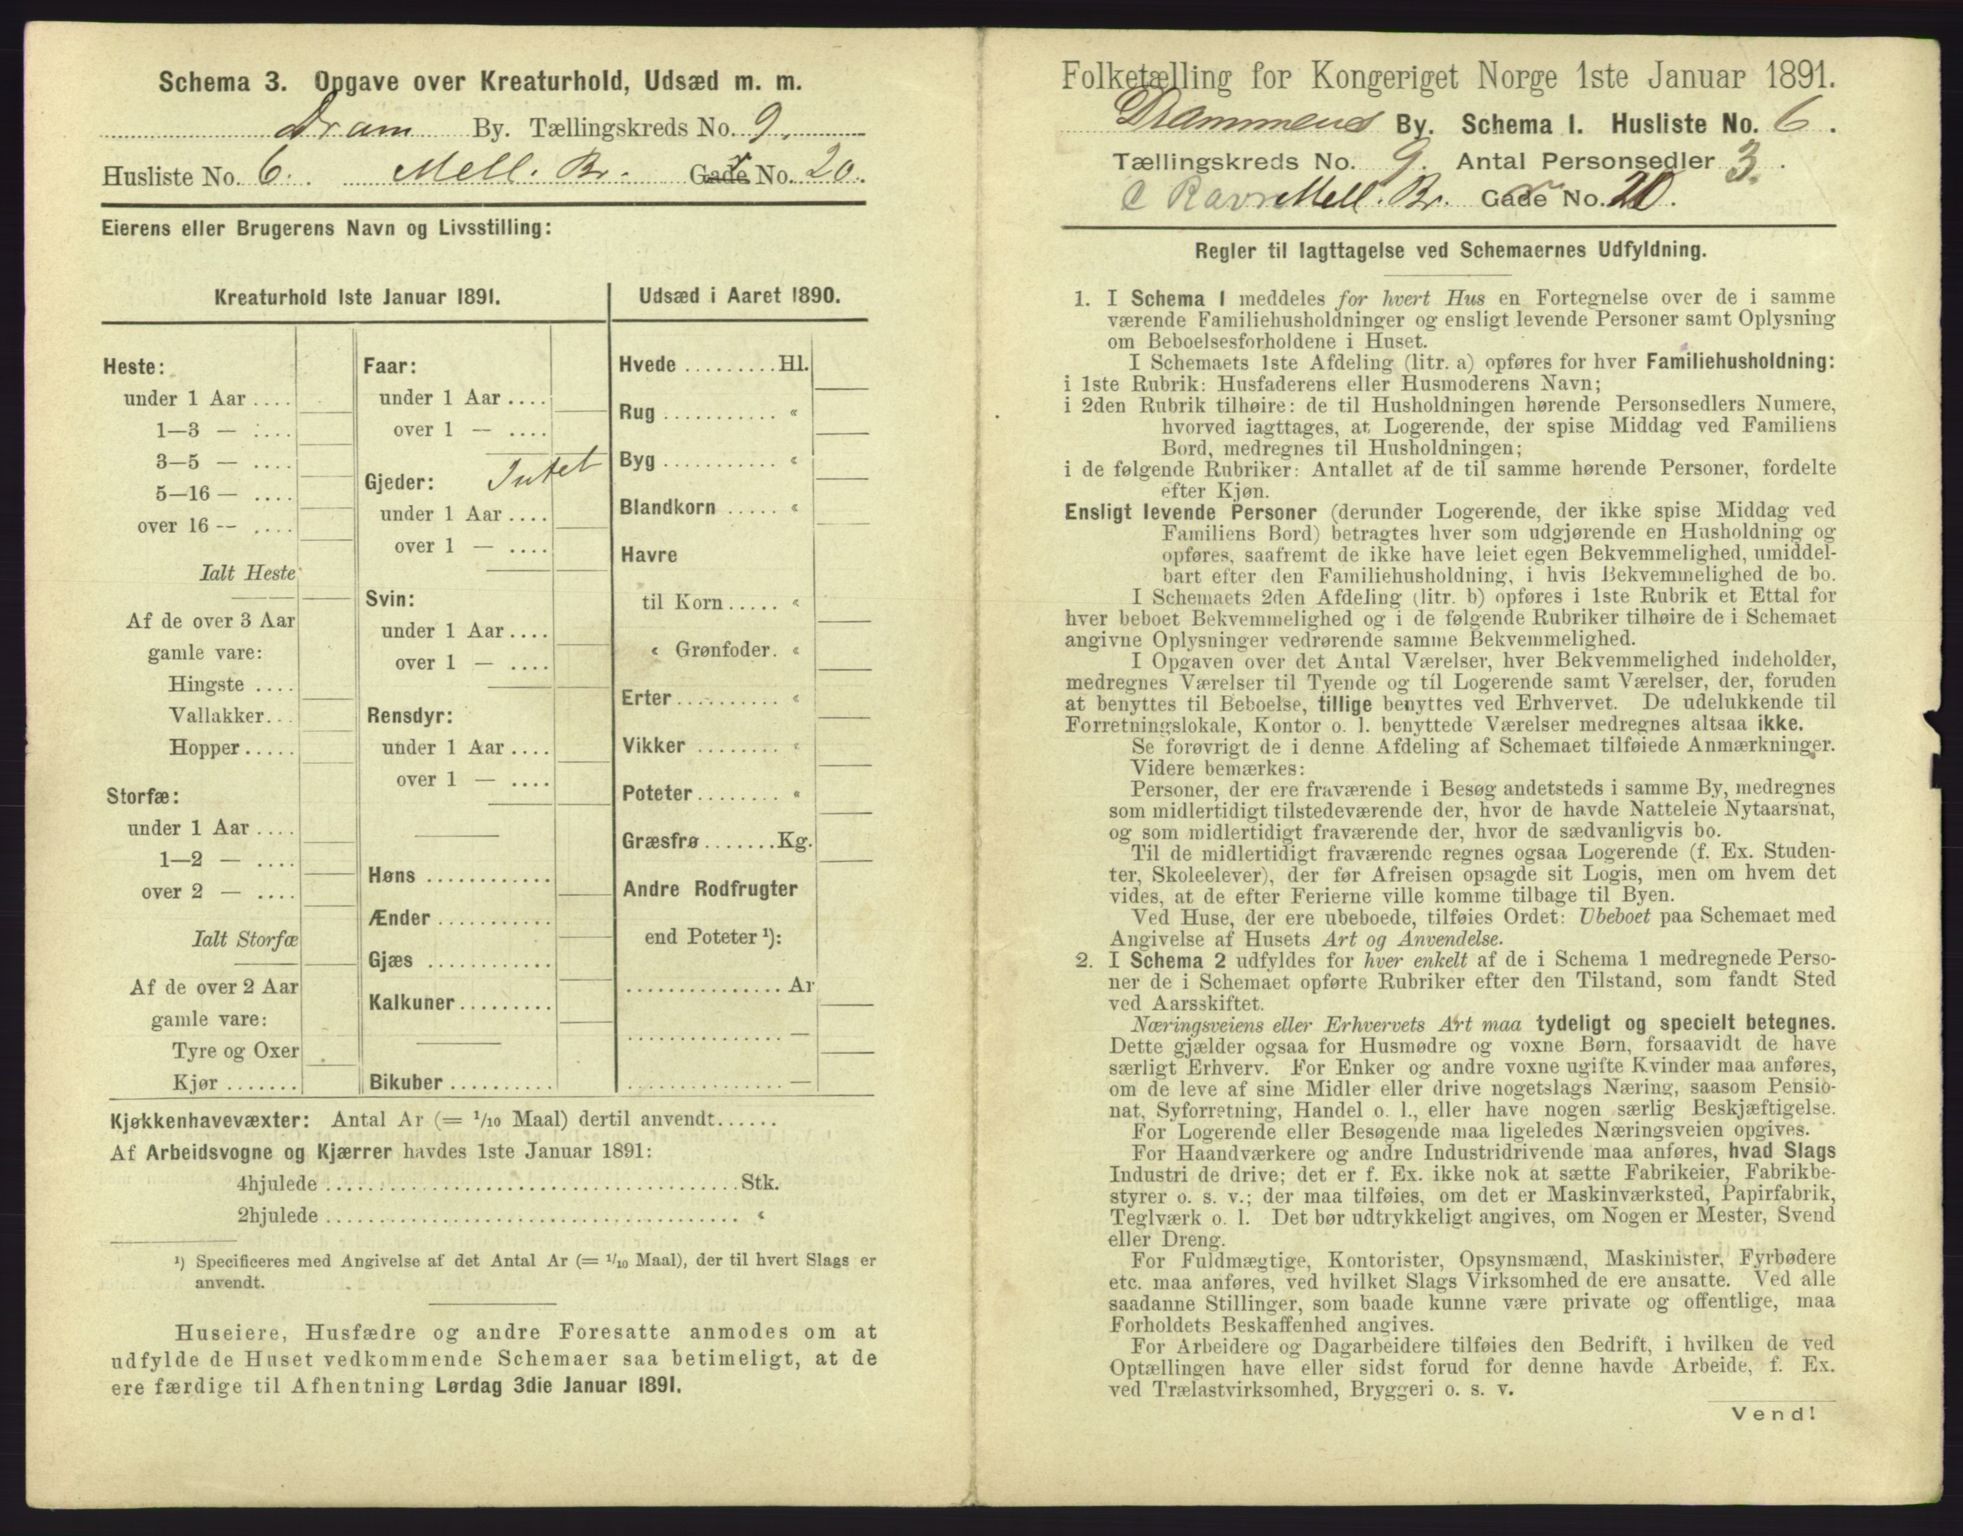 Schema 3. Opgave over Kreaturhold, Udsæd m. m.
Dram By. Tællingskreds No. 9.
Husliste No. 6. Mell. Br. Gade No. 20.
Eierens eller Brugerens Navn og Livsstilling:
Kreaturhold 1ste Januar 1891.
Heste:
under 1 Aar ....
1—3 — ....
3—5 — ....
5—16 — ....
over 16 — ....
Ialt Heste
Af de over 3 Aar
gamle vare:
Hingste ....
Vallakker...
Hopper .....
Storfæ:
under 1 Aar ....
1—2 — ....
over 2 — ....
Ialt Storfæ
Af de over 2 Aar
gamle vare:
Tyre og Oxer
Kjør .......
Faar:
under 1 Aar ....
over 1 — ....
Gjeder: Intet
under 1 Aar ....
over 1 — ....
Svin:
under 1 Aar ....
over 1 — ....
Rensdyr:
under 1 Aar ....
over 1 — ....
Høns ............
Ænder ...........
Gjæs ............
Kalkuner .........
Bikuber ..........
Udsæd i Aaret 1890.
Hvede .........Hl.
Rug ........... «
Byg ........... «
Blandkorn ..... «
Havre
til Korn ..... «
« Grønfoder. «
Erter .......... «
Vikker ........ «
Poteter ........ «
Græsfrø .......Kg.
Andre Rodfrugter
end Poteter ¹):
............... Ar
............... —
............... —
Kjøkkenhavevæxter: Antal Ar (= 1/10 Maal) dertil anvendt......
Af Arbeidsvogne og Kjærrer havdes 1ste Januar 1891:
4hjulede ...............................Stk.
2hjulede ............................... «
¹) Specificeres med Angivelse af det Antal Ar (= 1/10 Maal), der til hvert Slags er
anvendt.
Huseiere, Husfædre og andre Foresatte anmodes om at
udfylde de Huset vedkommende Schemaer saa betimeligt, at de
ere færdige til Afhentning Lørdag 3die Januar 1891.
Folketælling for Kongeriget Norge 1ste Januar 1891.
Drammens By. Schema I. Husliste No. 6.
Tællingskreds No. 9. Antal Personsedler 3.
C Ravn Mell. Br. Gade No. 20.
Regler til Iagttagelse ved Schemaernes Udfyldning.
1. I Schema I meddeles for hvert Hus en Fortegnelse over de i samme
værende Familiehusholdninger og ensligt levende Personer samt Oplysning
om Beboelsesforholdene i Huset.
I Schemaets 1ste Afdeling (litr. a) opføres for hver Familiehusholdning:
i 1ste Rubrik: Husfaderens eller Husmoderens Navn;
i 2den Rubrik tilhøire: de til Husholdningen hørende Personsedlers Numere,
hvorved iagttages, at Logerende, der spise Middag ved Familiens
Bord, medregnes til Husholdningen;
i de følgende Rubriker: Antallet af de til samme hørende Personer, fordelte
efter Kjøn.
Ensligt levende Personer (derunder Logerende, der ikke spise Middag ved
Familiens Bord) betragtes hver som udgjørende en Husholdning og
opføres, saafremt de ikke have leiet egen Bekvemmelighed, umiddel-
bart efter den Familiehusholdning, i hvis Bekvemmelighed de bo.
I Schemaets 2den Afdeling (litr. b) opføres i 1ste Rubrik et Ettal for
hver beboet Bekvemmelighed og i de følgende Rubriker tilhøire de i Schemaet
angivne Oplysninger vedrørende samme Bekvemmelighed.
I Opgaven over det Antal Værelser, hver Bekvemmelighed indeholder,
medregnes Værelser til Tyende og til Logerende samt Værelser, der, foruden
at benyttes til Beboelse, tillige benyttes ved Erhvervet. De udelukkende til
Forretningslokale, Kontor o. l. benyttede Værelser medregnes altsaa ikke.
Se forøvrigt de i denne Afdeling af Schemaet tilføiede Anmærkninger.
Videre bemærkes:
Personer, der ere fraværende i Besøg andetsteds i samme By, medregnes
som midlertidigt tilstedeværende der, hvor de havde Natteleie Nytaarsnat,
og som midlertidigt fraværende der, hvor de sædvanligvis bo.
Til de midlertidigt fraværende regnes ogsaa Logerende (f. Ex. Studen-
ter, Skoleelever), der før Afreisen opsagde sit Logis, men om hvem det
vides, at de efter Ferierne ville komme tilbage til Byen.
Ved Huse, der ere ubeboede, tilføies Ordet: Ubeboet paa Schemaet med
Angivelse af Husets Art og Anvendelse.
2. I Schema 2 udfyldes for hver enkelt af de i Schema 1 medregnede Perso-
ner de i Schemaet opførte Rubriker efter den Tilstand, som fandt Sted
ved Aarsskiftet.
Næringsveiens eller Erhvervets Art maa tydeligt og specielt betegnes.
Dette gjælder ogsaa for Husmødre og voxne Børn, forsaavidt de have
særligt Erhverv. For Enker og andre voxne ugifte Kvinder maa anføres,
om de leve af sine Midler eller drive nogetslags Næring, saasom Pensio-
nat, Syforretning, Handel o. l., eller have nogen særlig Beskjæftigelse.
For Logerende eller Besøgende maa ligeledes Næringsveien opgives.
For Haandværkere og andre Industridrivende maa anføres, hvad Slags
Industri de drive; det er f. Ex. ikke nok at sætte Fabrikeier, Fabrikbe-
styrer o. s. v.; der maa tilføies, om det er Maskinværksted, Papirfabrik,
Teglværk o. l. Det bør udtrykkeligt angives, om Nogen er Mester, Svend
eller Dreng.
For Fuldmægtige, Kontorister, Opsynsmænd, Maskinister, Fyrbødere
etc. maa anføres, ved hvilket Slags Virksomhed de ere ansatte. Ved alle
saadanne Stillinger, som baade kunne være private og offentlige, maa
Forholdets Beskaffenhed angives.
For Arbeidere og Dagarbeidere tilføies den Bedrift, i hvilken de ved
Optællingen have eller sidst forud for denne havde Arbeide, f. Ex.
ved Trælastvirksomhed, Bryggeri o. s. v.
Vend!